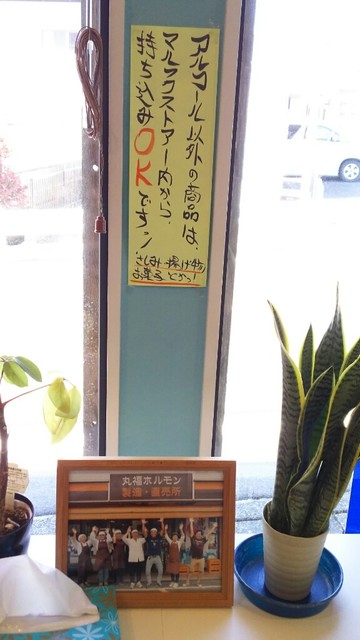 アルコール以外の商品は、
マルフクストアー内から、
持ち込みOKですッ
さしみ・揚げ物
お菓子とかっ!
丸福ホルモン
製造・直売所